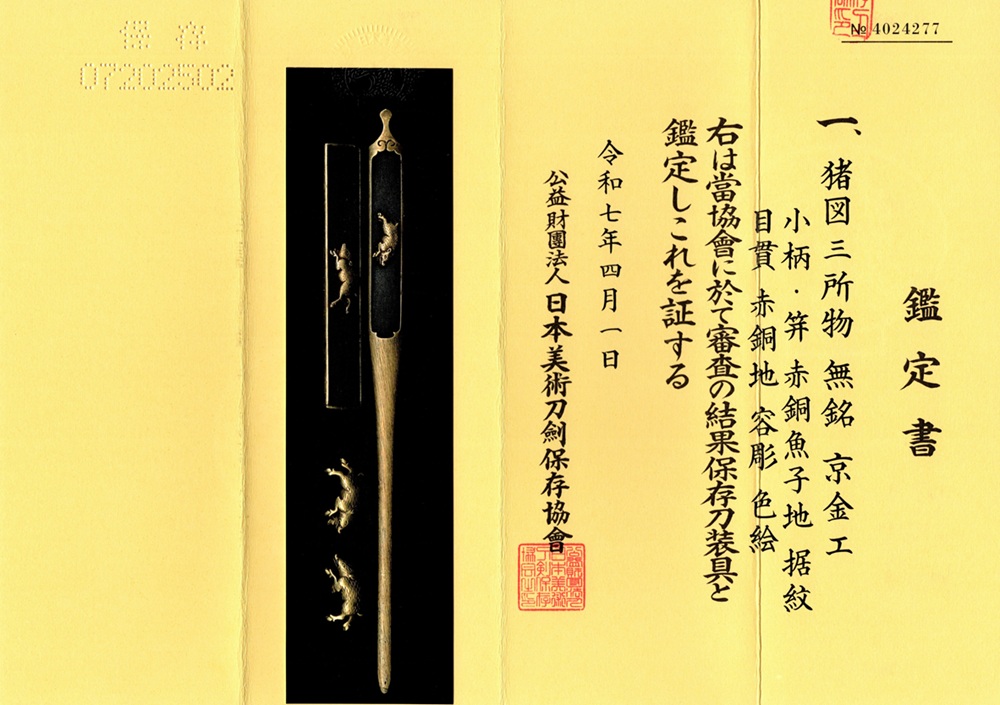 № 4024277
鑑定書
一、猪図三所物 無銘 京金工
小柄・笄 赤銅魚子地 据紋
目貫 赤銅地 容彫 色絵
右は當協會に於て審査の結果保存刀装具と
鑑定しこれを証する
令和七年四月一日
公益財團法人 日本美術刀劍保存協會
保存
07202502